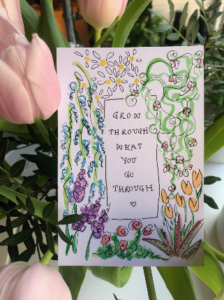 GROW
THROUGH
WHAT
YOU
GO
THROUGH